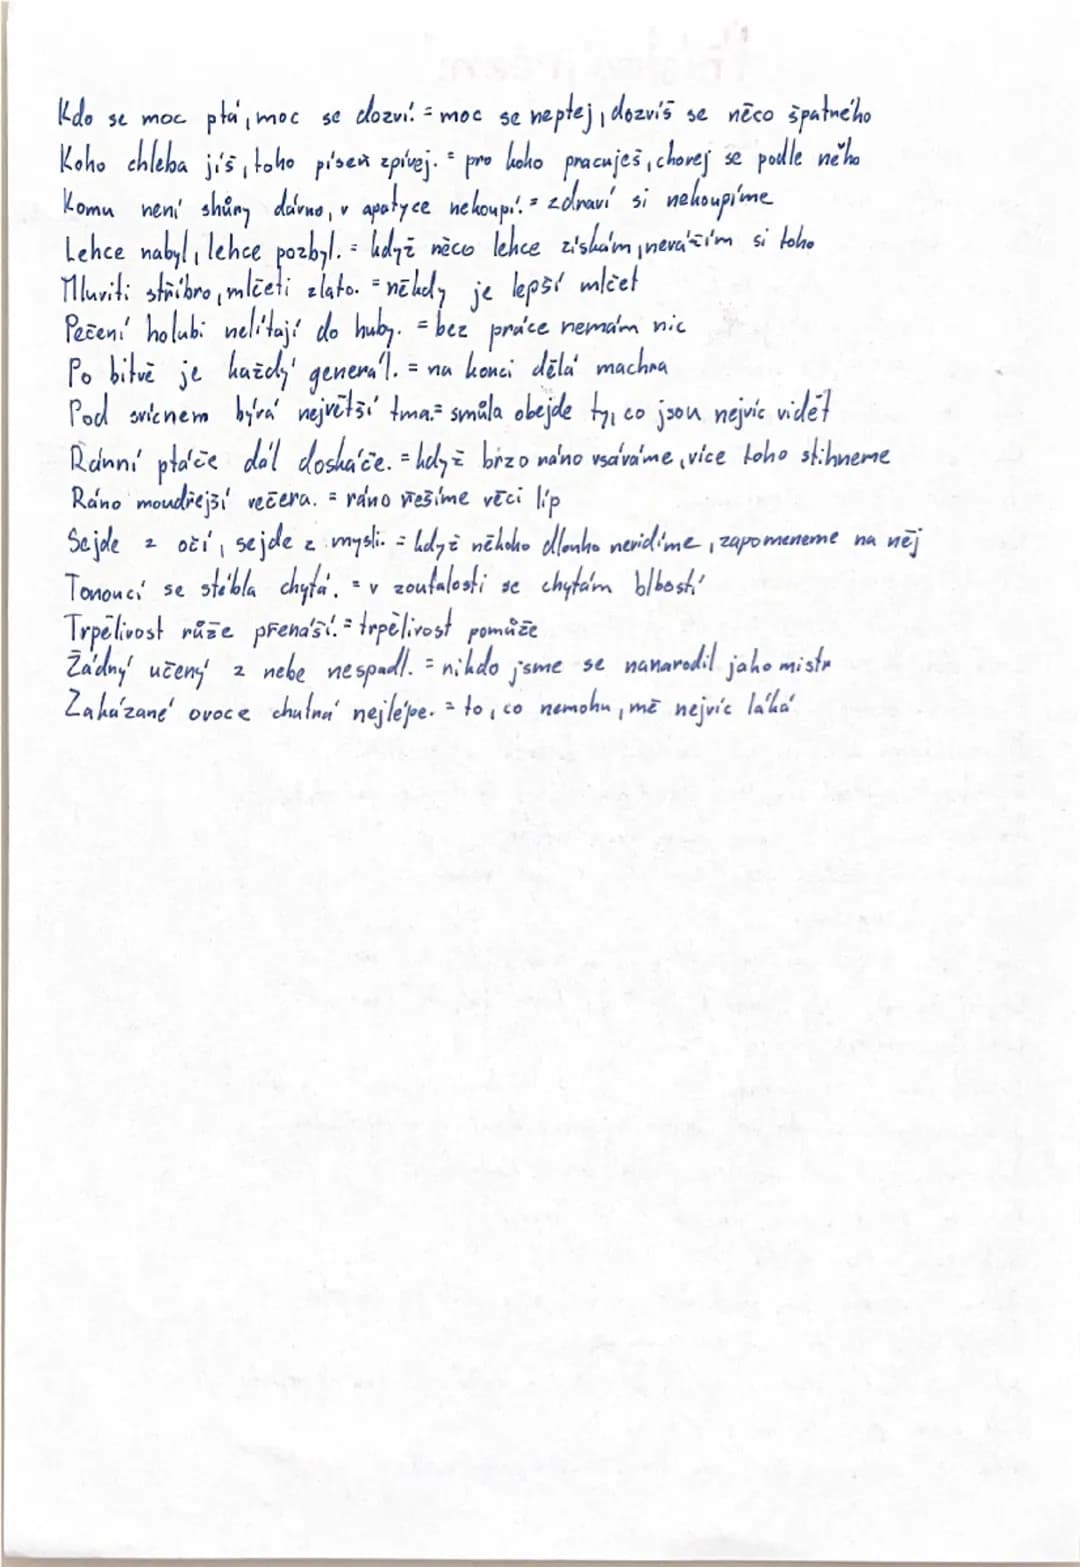 Kdo se moc ptá, moc se dozví. = moc se neptej, dozvíš se něco špatného
Koho chleba jíš, toho píseň zpívej. = pro koho pracuješ, chovej se podle něho
Komu není shůny dávno, v apatyce nekoupí. = zdraví si nekoupíme
Lehce nabyl, lehce pozbyl. = když něco lehce získám, nevážím si toho
Mluviti stříbro, mlčeti zlato. = někdy je lepší mlčet
Pečení holubi nelítají do huby. = bez práce nemám nic
Po bitvě je každý generál. = na konci dělá machra
Pod svícnem bývá největší tma. = smůla obejde ty, co jsou nejvíc vidět
Ranní ptáče dál doskáče. = když brzo ráno vsáváme, více toho stihneme
Ráno moudřejší večera. = ráno řešíme věci líp
Sejde z očí, sejde z mysli. = když někoho dlouho nevidíme, zapomeneme na něj
Tonoucí se stébla chytá. = v zoufalosti se chytám blbostí
Trpělivost růže přenáší. = trpělivost pomůže
Žádný učený z nebe nespadl. = nikdo jsme se nanarodil jako mistr
Zakázané ovoce chutná nejlépe. = to, co nemohu, mě nejvíc láká